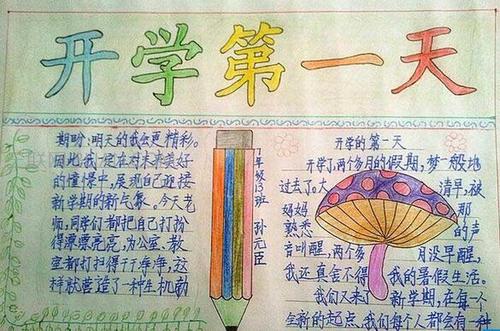 开学第一天
期盼:明天的我会更精彩。
因此,我一定在对未来美好
的憧憬中,展现自己迎接
新学期的新气象。今天老
师,同学们都把自己打扮
得漂漂亮亮,为公室、教
室都打扫得干干净净,这
样就营造了一种生机勃
年级13班 孙元臣
开学的第一天
开学了,两个多月的假期,梦一般地
过去了。大清早,被
妈妈那
熟悉的声
音叫醒,两个多月没早醒,
我还真舍不得我的暑假生活。
我们又来了新学期,在每个
全新的起点,我们每个人都会有一种